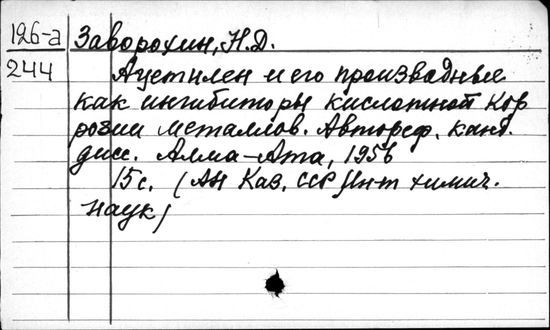 126-а Заворохин, Н.Д.
244
Ацетилен и его производные
как ингибиторы кислотной кор
розии металлов. Автореф. канд.
дисс. Алма-Ата, 1956
15с. (АН Каз. ССР Инт химич.
наук)